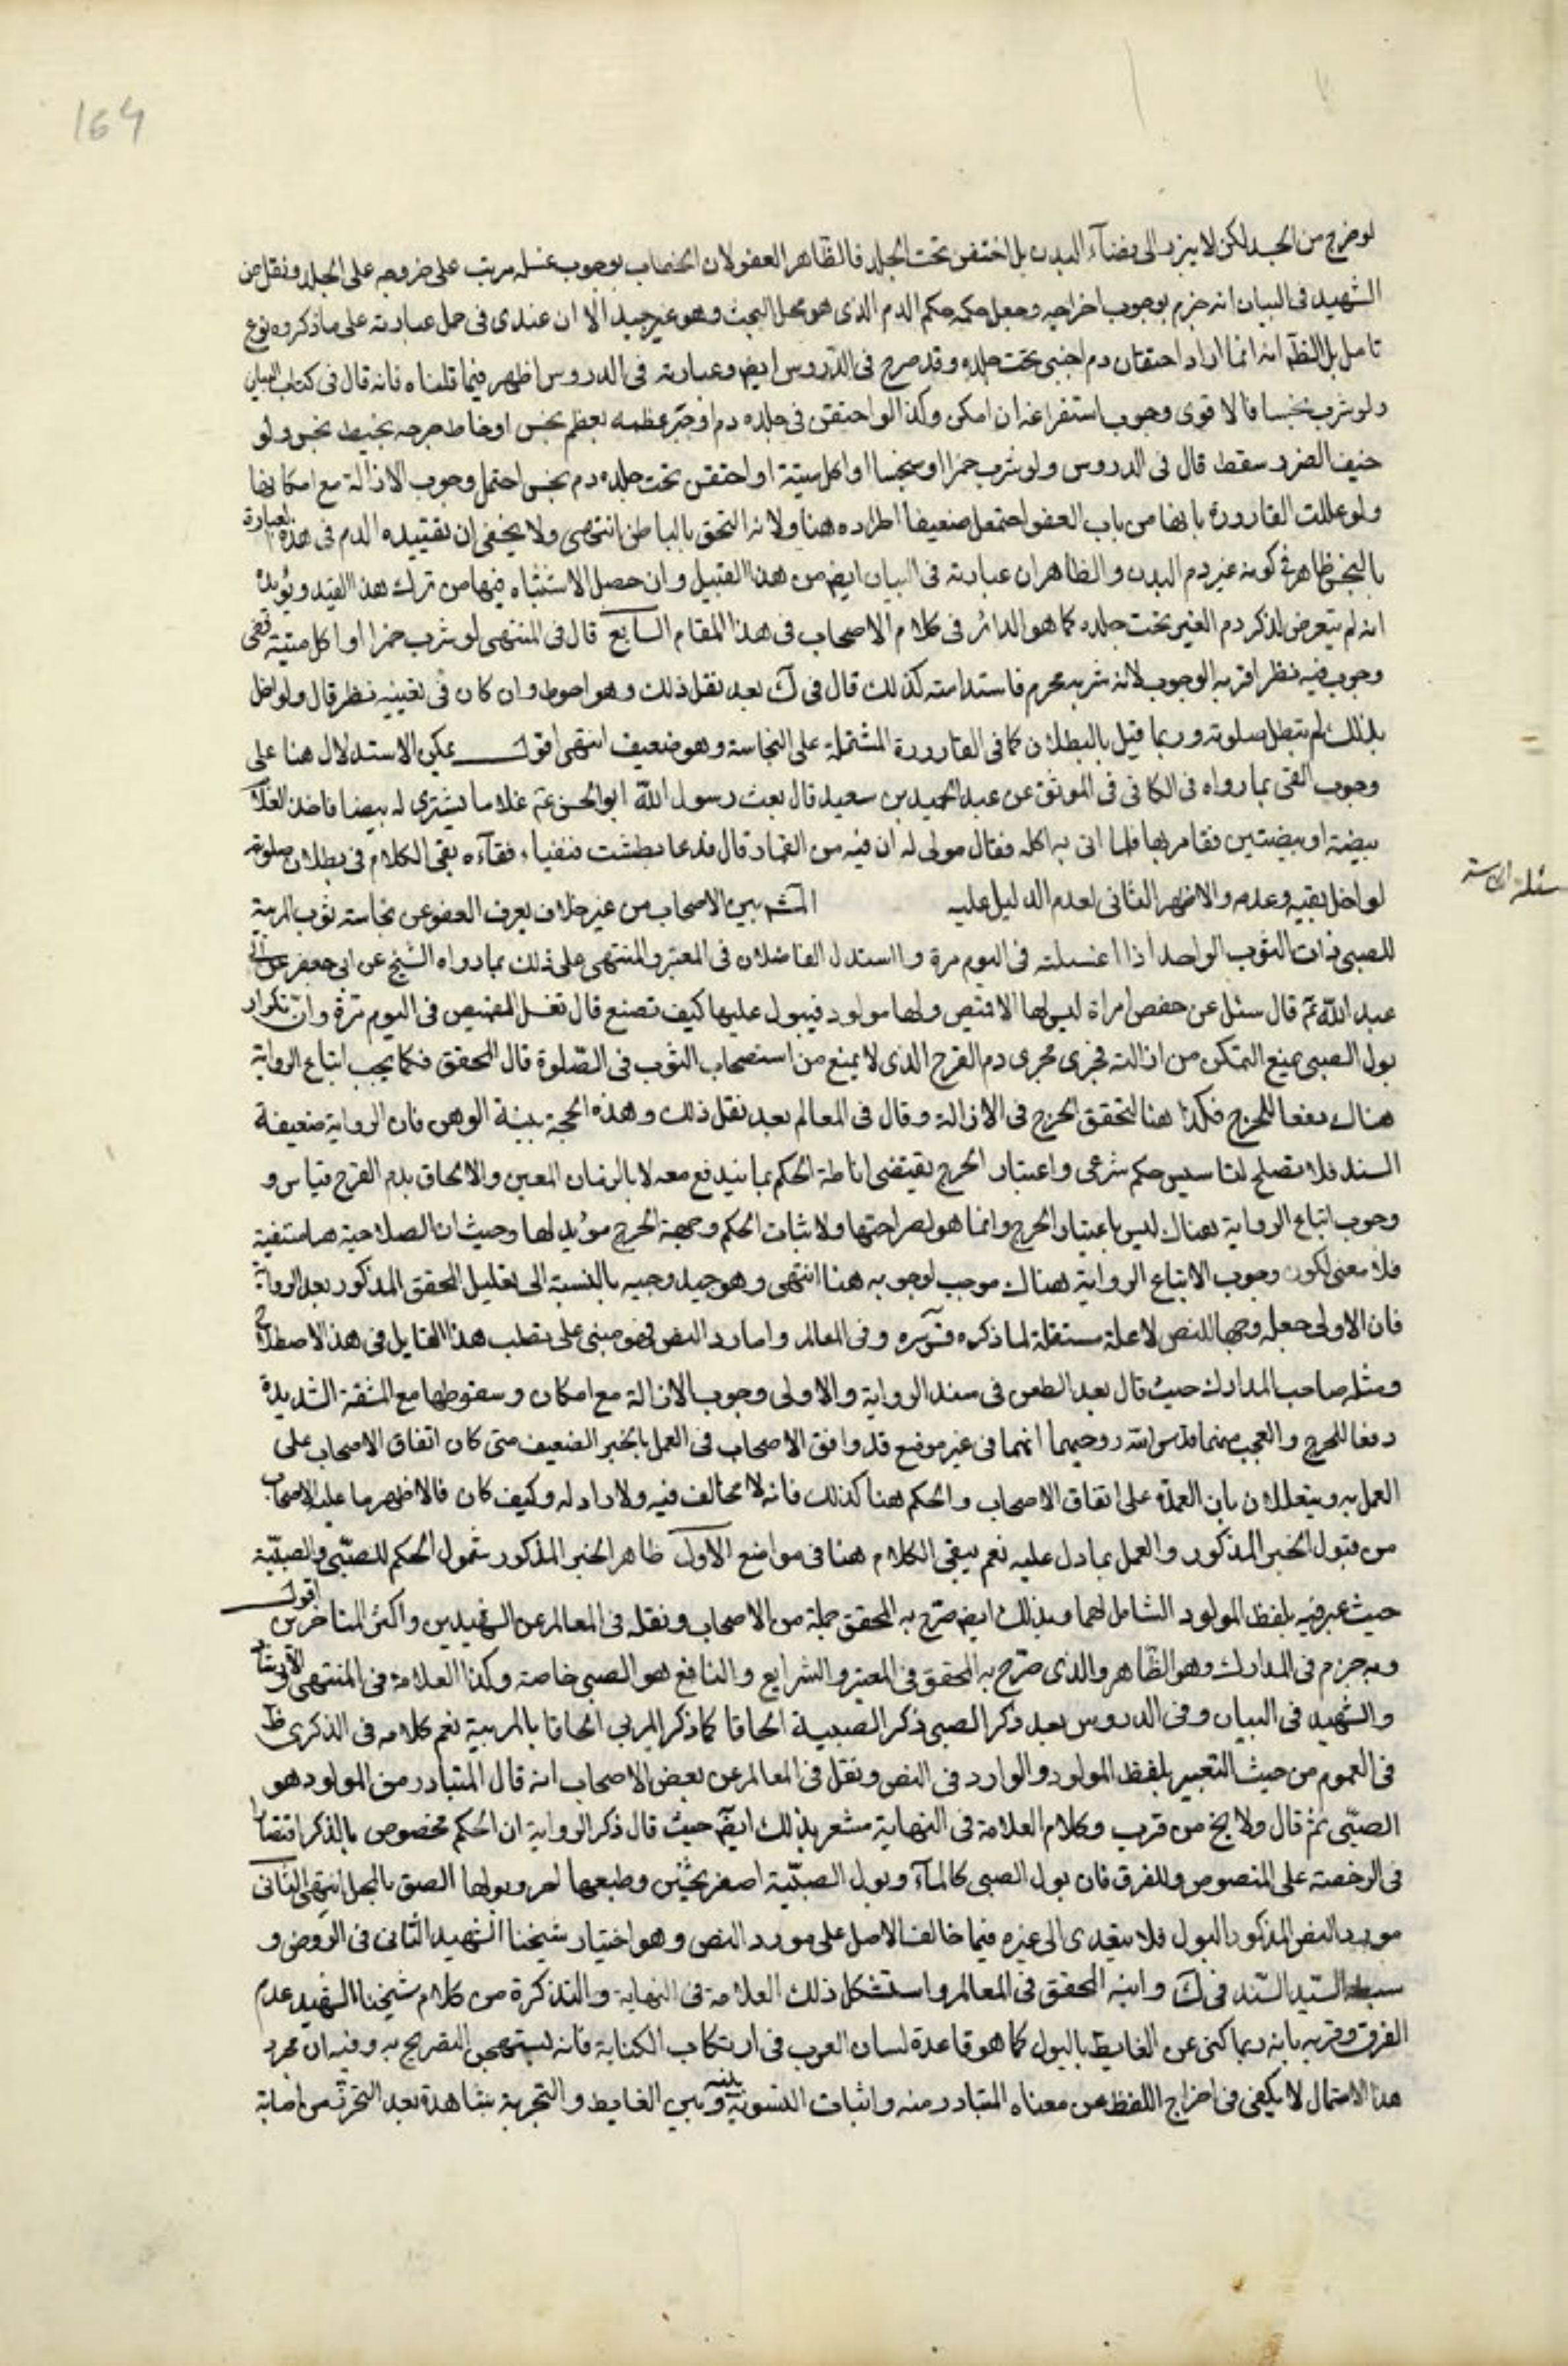 164
لو خرج من الجسد لكن لا يبرز الى فضاء البدن بل احتقن تحت الجلد فالظاهر العفو لان الخصاب بوجوب غسله مرتب على خروجه على الجلد ونقل عن
الشهيد فى البيان انه جزم بوجوب اخراجه وجعل حكمه حكم الدم الذى هو محل البحث وهو غير جيد الا ان عندى فى حمل عبارته على ما ذكروه نوع
تامل بل الظ انه انما اراد احتقان دم اجنبى تحت جلده وقد صرح فى الدروس ايض وعبارته فى الدروس اظهر فيما قلناه فانه قال فى كتاب البيان
ولو شرب نجسا فالاقوى وجوب استفراغه ان امكن وكذا لو احتقن فى جلده دم او جبر عظمه بعظم نجس او خاط جرحه بخيط نجس ولو
خيف الضرر سقط قال فى الدروس ولو شرب خمرا او نجسا او اكل ميتة او احتقن تحت جلده دم نجس احتمل وجوب الازالة مع امكانها
ولو عللت القارورة بانها من باب العفو احتمل ضعيفا اطراده هنا ولانه التحق بالباطن انتهى ولا يخفى ان تقييده الدم فى هذه العبارة
بالنجس ظاهر فى كونه غير دم البدن والظاهر ان عبارته فى البيان ايض من هذا القبيل وان حصل الاشتباه فيها من ترك هذا القيد ويؤيده
انه لم يتعرض لذكر دم الغير تحت جلده كما هو الدائر فى كلام الاصحاب فى هذا المقام السابع قال فى المنتهى لو شرب خمرا او اكل ميتة ففى
وجوب قيئه نظر اقربه الوجوب لانه شربه محرم فاستدامته كذلك قال فى ك بعد نقل ذلك وهو احوط وان كان فى تعيينه نظر قال ولو اخل
بذلك لم تبطل صلوته وربما قيل بالبطلان كما فى القارورة المشتملة على النجاسة وهو ضعيف انتهى اقول يمكن الاستدلال هنا على
وجوب القى بما رواه فى الكافى فى الموثق عن عبد الحميد بن سعيد قال بعث رسول الله ابو الحسن عم غلاما يشترى له بيضا فاخذ الغلام
بيضة او بيضتين فقامر بها فلما اتى به اكله فقال مولى له ان فيه من القمار قال فدعا بطشت فتقياء فقاءه بقى الكلام فى بطلان صلوته
لو اخل بقيئه وعدمه والاظهر الثانى لعدم الدليل عليه المشهور بين الاصحاب من غير خلاف يعرف العفو عن نجاسة ثوب المربية
للصبى ذات الثوب الواحد اذا اغسلته فى اليوم مرة واستدل الفاضلان فى المعتبر والمنتهى على ذلك بما رواه الشيخ عن ابى حفص عن ابى
عبد الله عم قال سئل عن حفص امراة ليس لها الا قميص ولها مولود فيبول عليها كيف تصنع قال تغسل القميص فى اليوم مرة وان تكرار
بول الصبى يمنع التمكن من ازالته فجرى مجرى دم القرح الذى لا يمنع من استصحاب الثوب فى الصلوة قال المحقق فكما يجب اتباع الرواية
هناك دفعا للحرج فكذا هنا لتحقق الحرج فى الازالة وقال فى المعالم بعد نقل ذلك وهذه الحجة بينة الوهن فان الرواية ضعيفة
السند فلا تصلح لتاسيس حكم شرعى واعتبار الحرج يقتضى اناطة الحكم بما يندفع معه لا بالزمان المعين والالحاق بدم القرح قياس و
وجوب اتباع الرواية هناك ليس باعتبار الحرج وانما هو لصراحتها ولاثبات الحكم وجهة الحرج مؤيد لها وحيث ان الصلاحية هنا منتفية
فلا معنى لكون وجوب الاتباع الرواية هناك موجب لوجوبه هنا انتهى وهو جيد وجيه بالنسبة الى تعليل المحقق المذكور بعد الرواية
فان الاولى جعله وجها للنص لا علة مستقلة لما ذكره وفى المعالم واما رد النص فهو مبنى على تصلب هذا القايل فى هذا الاصطلاح
ومثله صاحب المدارك حيث قال بعد الطعن فى سند الرواية والاولى وجوب الازالة مع امكان وسقوطها مع المشقة الشديدة
دفعا للحرج والعجب منهما قدس الله روحيهما انهما فى غير موضع قد وافق الاصحاب فى العمل بالخبر الضعيف متى كان اتفاق الاصحاب على
العمل به ويتعللان بان العمدة على اتفاق الاصحاب والحكم هنا كذلك فانه لا مخالف فيه ولا راد له وكيف كان فالاظهر ما عليه الاصحاب
من قبول الخبر المذكور والعمل بما دل عليه نعم يبقى الكلام هنا فى مواضع الاول ظاهر الخبر المذكور شمول الحكم للصبى والصبية
حيث عبر فيه بلفظ المولود الشامل لهما وبذلك ايض صرح به المحقق جملة من الاصحاب ونقله فى المعالم عن الشهيدين واكثر المتاخرين اقول
وبه جزم فى المدارك وهو الظاهر والذى صرح به المحقق فى المعتبر والشرايع والنافع هو الصبى خاصة وكذا العلامة فى المنتهى والارشاد
والشهيد فى البيان وفى الدروس بعد ذكر الصبى ذكر الصبية الحاقا كما ذكر المربى الحاقا بالمربية نعم كلامه فى الذكرى ظ
فى العموم من حيث التعبير بلفظ المولود والوارد فى النص ونقل فى المعالم عن بعض الاصحاب انه قال المتبادر من المولود هو
الصبى ثم قال ولا يخ من قرب وكلام العلامة فى النهاية مشعر بذلك ايض حيث قال ذكر الرواية ان الحكم مخصوص بالذكر اقتصارا
فى الرخصة على المنصوص وللفرق فان بول الصبى كالماء وبول الصبية اصفر ثخين وطبعها احر وبولها الصق بالمحل انتهى الثانى
مورد النص المذكور البول فلا يتعدى الى غيره فيما خالف الاصل على مورد النص وهو اختيار شيخنا الشهيد الثانى فى الروض و
سبطه السيد السند فى ك وابنه المحقق فى المعالم واستشكل ذلك العلامة فى النهاية والتذكرة من كلام شيخنا الشهيد عدم
الفرق وقربه بانه ربما كنى عن الغايط بالبول كما هو قاعدة لسان العرب فى ارتكاب الكناية فانه يستهجن التصريح به وفيه ان مجرد
هذا الاحتمال لا يكفى فى اخراج اللفظ عن معناه المتبادر منه واثبات التسوية بينه وبين الغايط والتجربة شاهدة بعد التحرز من اصابة